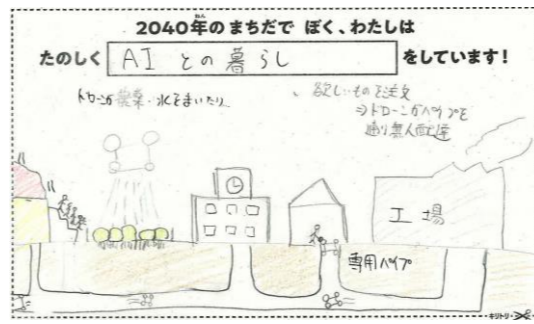 2040年のまちだで ぼく、わたしは
ねん
たのしく AIとの暮らし をしています!
ドローンが農薬・水をまいたり
欲しいものを注文
⇒ドローンがパイプを
通り無人配達
工場
専用パイプ
キリトリ